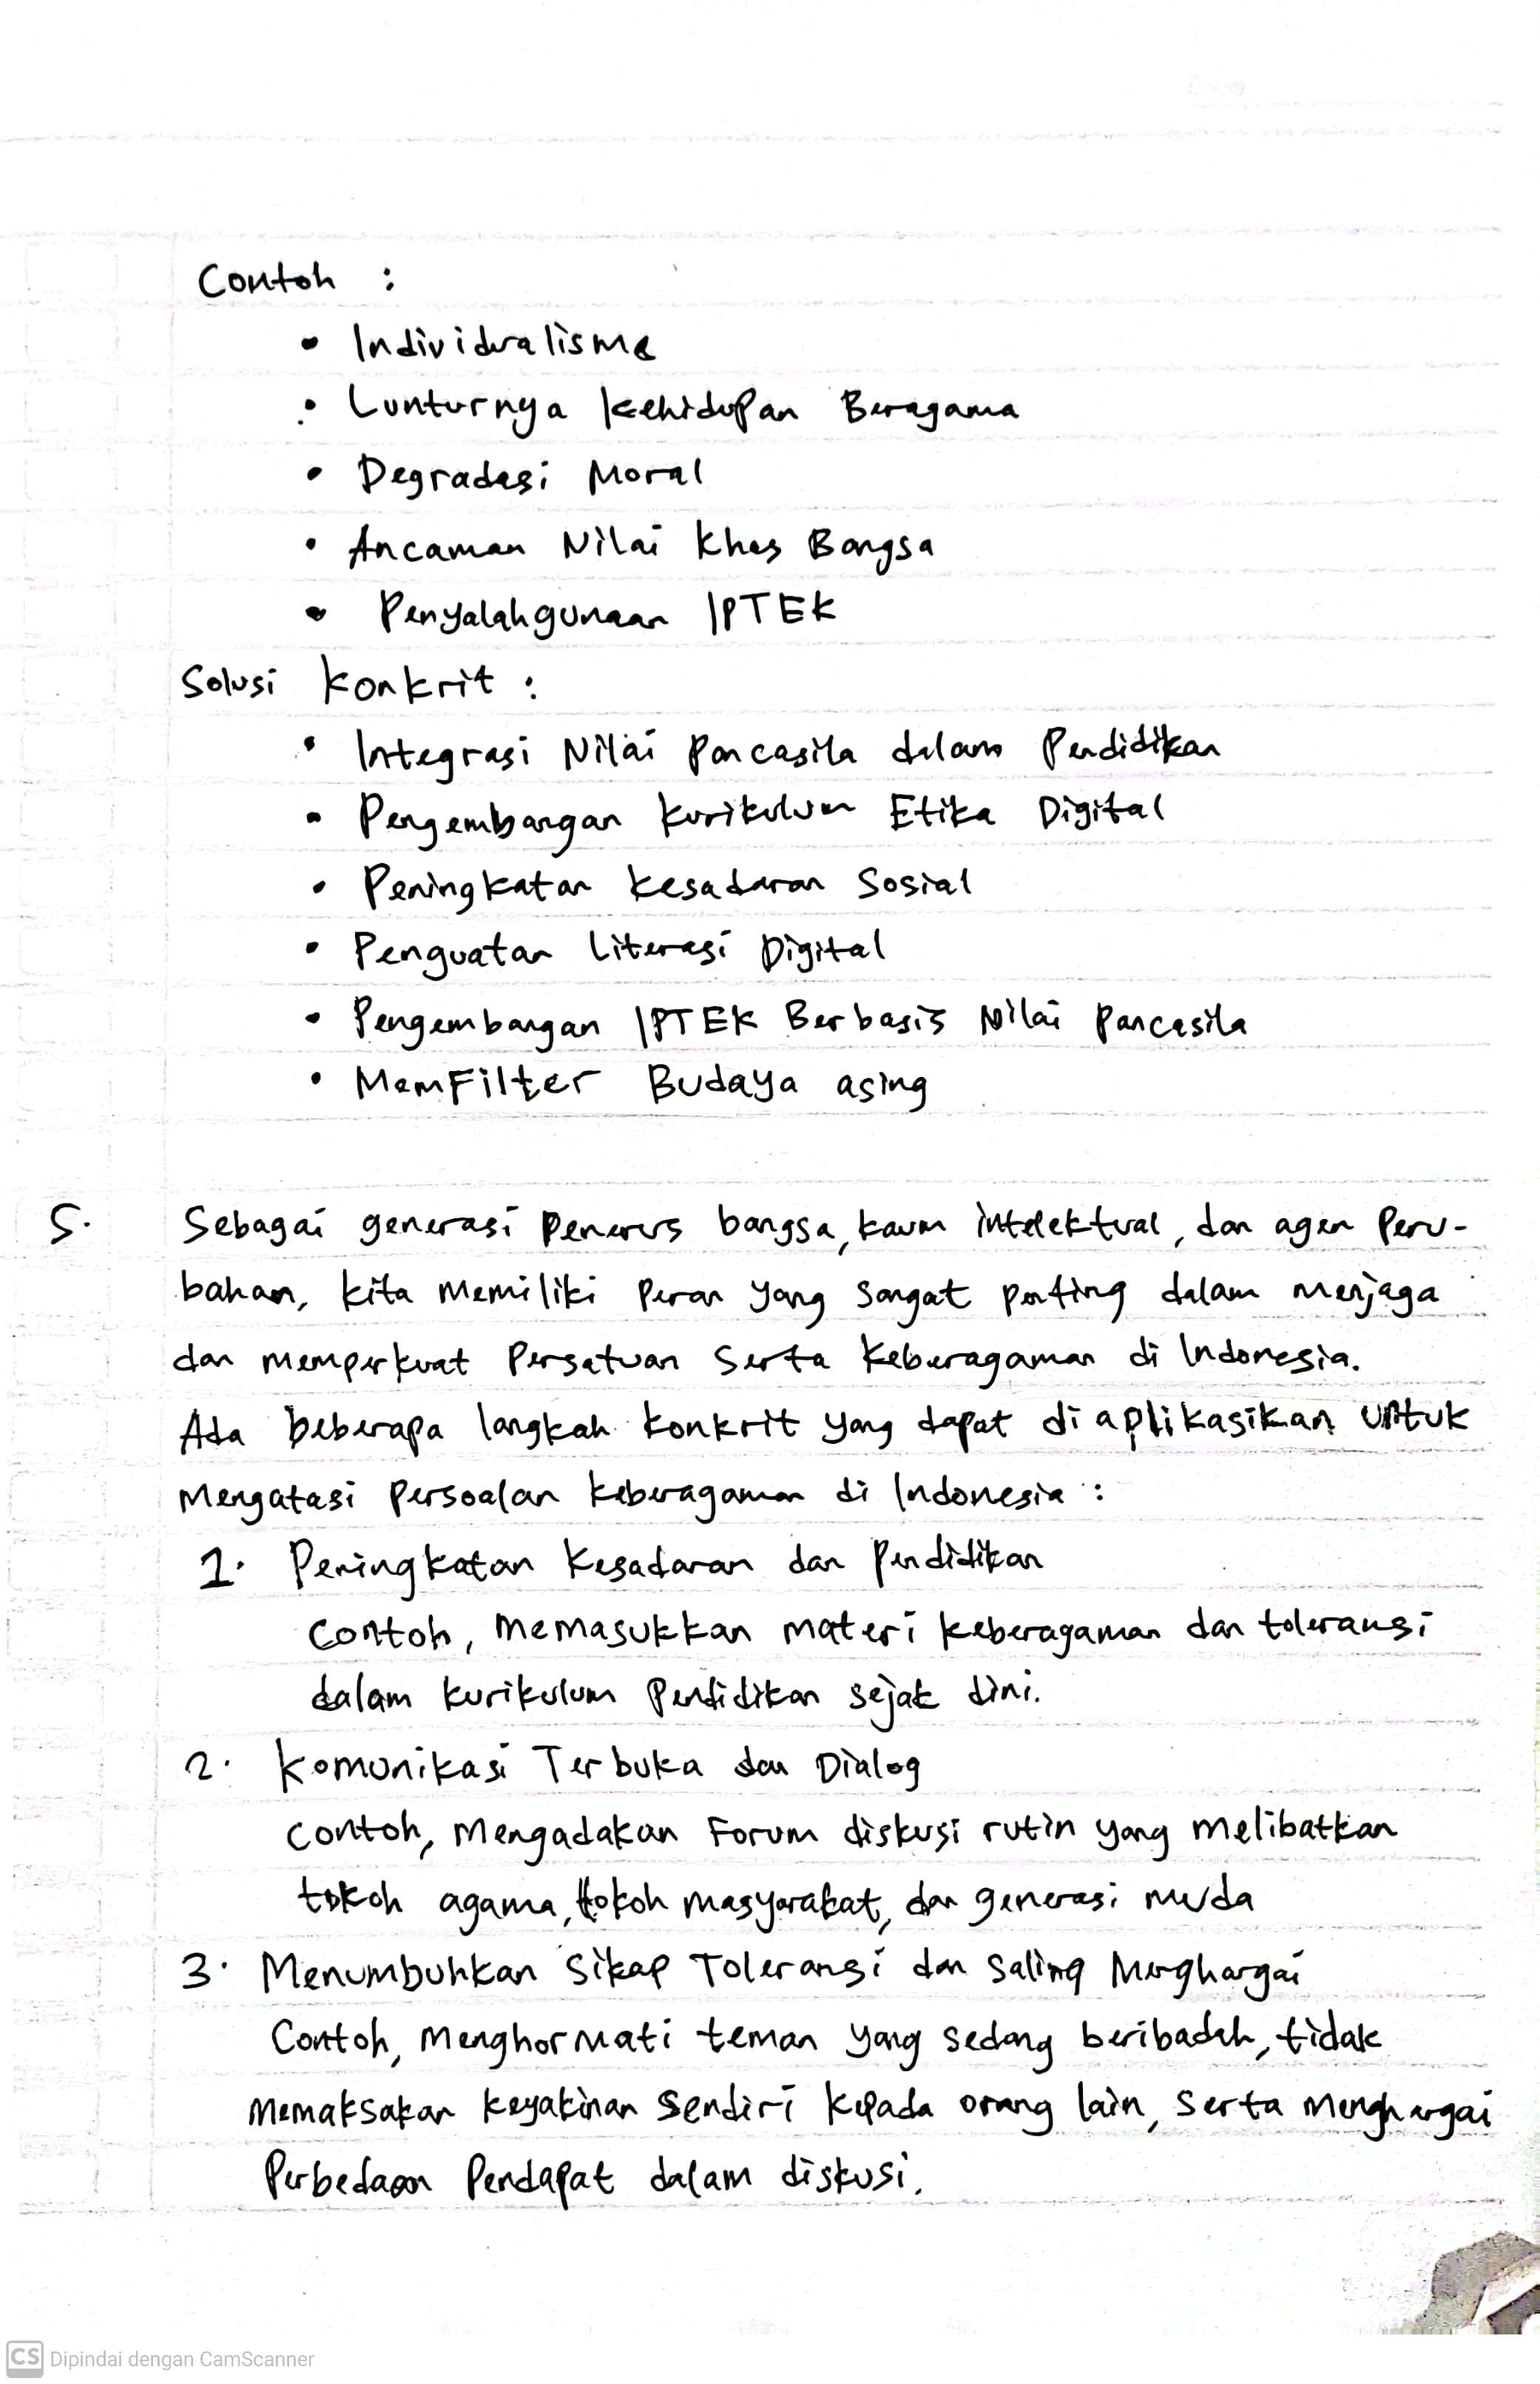 Contoh :
• Individualisme
• Lunturnya Kehidupan Beragama
• Degradasi Moral
• Ancaman Nilai Khas Bangsa
• Penyalahgunaan IPTEK
Solusi Konkrit :
• Integrasi Nilai Pancasila dalam Pendidikan
• Pengembangan Kurikulum Etika Digital
• Peningkatan Kesadaran Sosial
• Penguatan Literasi Digital
• Pengembangan IPTEK Berbasis Nilai Pancasila
• MemFilter Budaya asing
5. Sebagai generasi Penerus bangsa, kaum intelektual, dan agen Peru-
bahan, kita memiliki Peran yang sangat penting dalam menjaga
dan memperkuat Persatuan Serta Keberagaman di Indonesia.
Ada beberapa langkah konkrit yang dapat di aplikasikan untuk
Mengatasi Persoalan keberagaman di Indonesia :
1. Peningkatan Kesadaran dan Pendidikan
Contoh, Memasukkan materi keberagaman dan toleransi
dalam kurikulum Pendidikan sejak dini.
2. Komunikasi Terbuka dan Dialog
Contoh, Mengadakan Forum diskusi rutin yang melibatkan
tokoh agama, tokoh masyarakat, dan generasi muda
3. Menumbuhkan Sikap Toleransi dan Saling Menghargai
Contoh, Menghormati teman yang sedang beribadah, tidak
Memaksakan keyakinan Sendiri kepada orang lain, Serta Menghargai
Perbedaan Pendapat dalam diskusi.
CS Dipindai dengan CamScanner